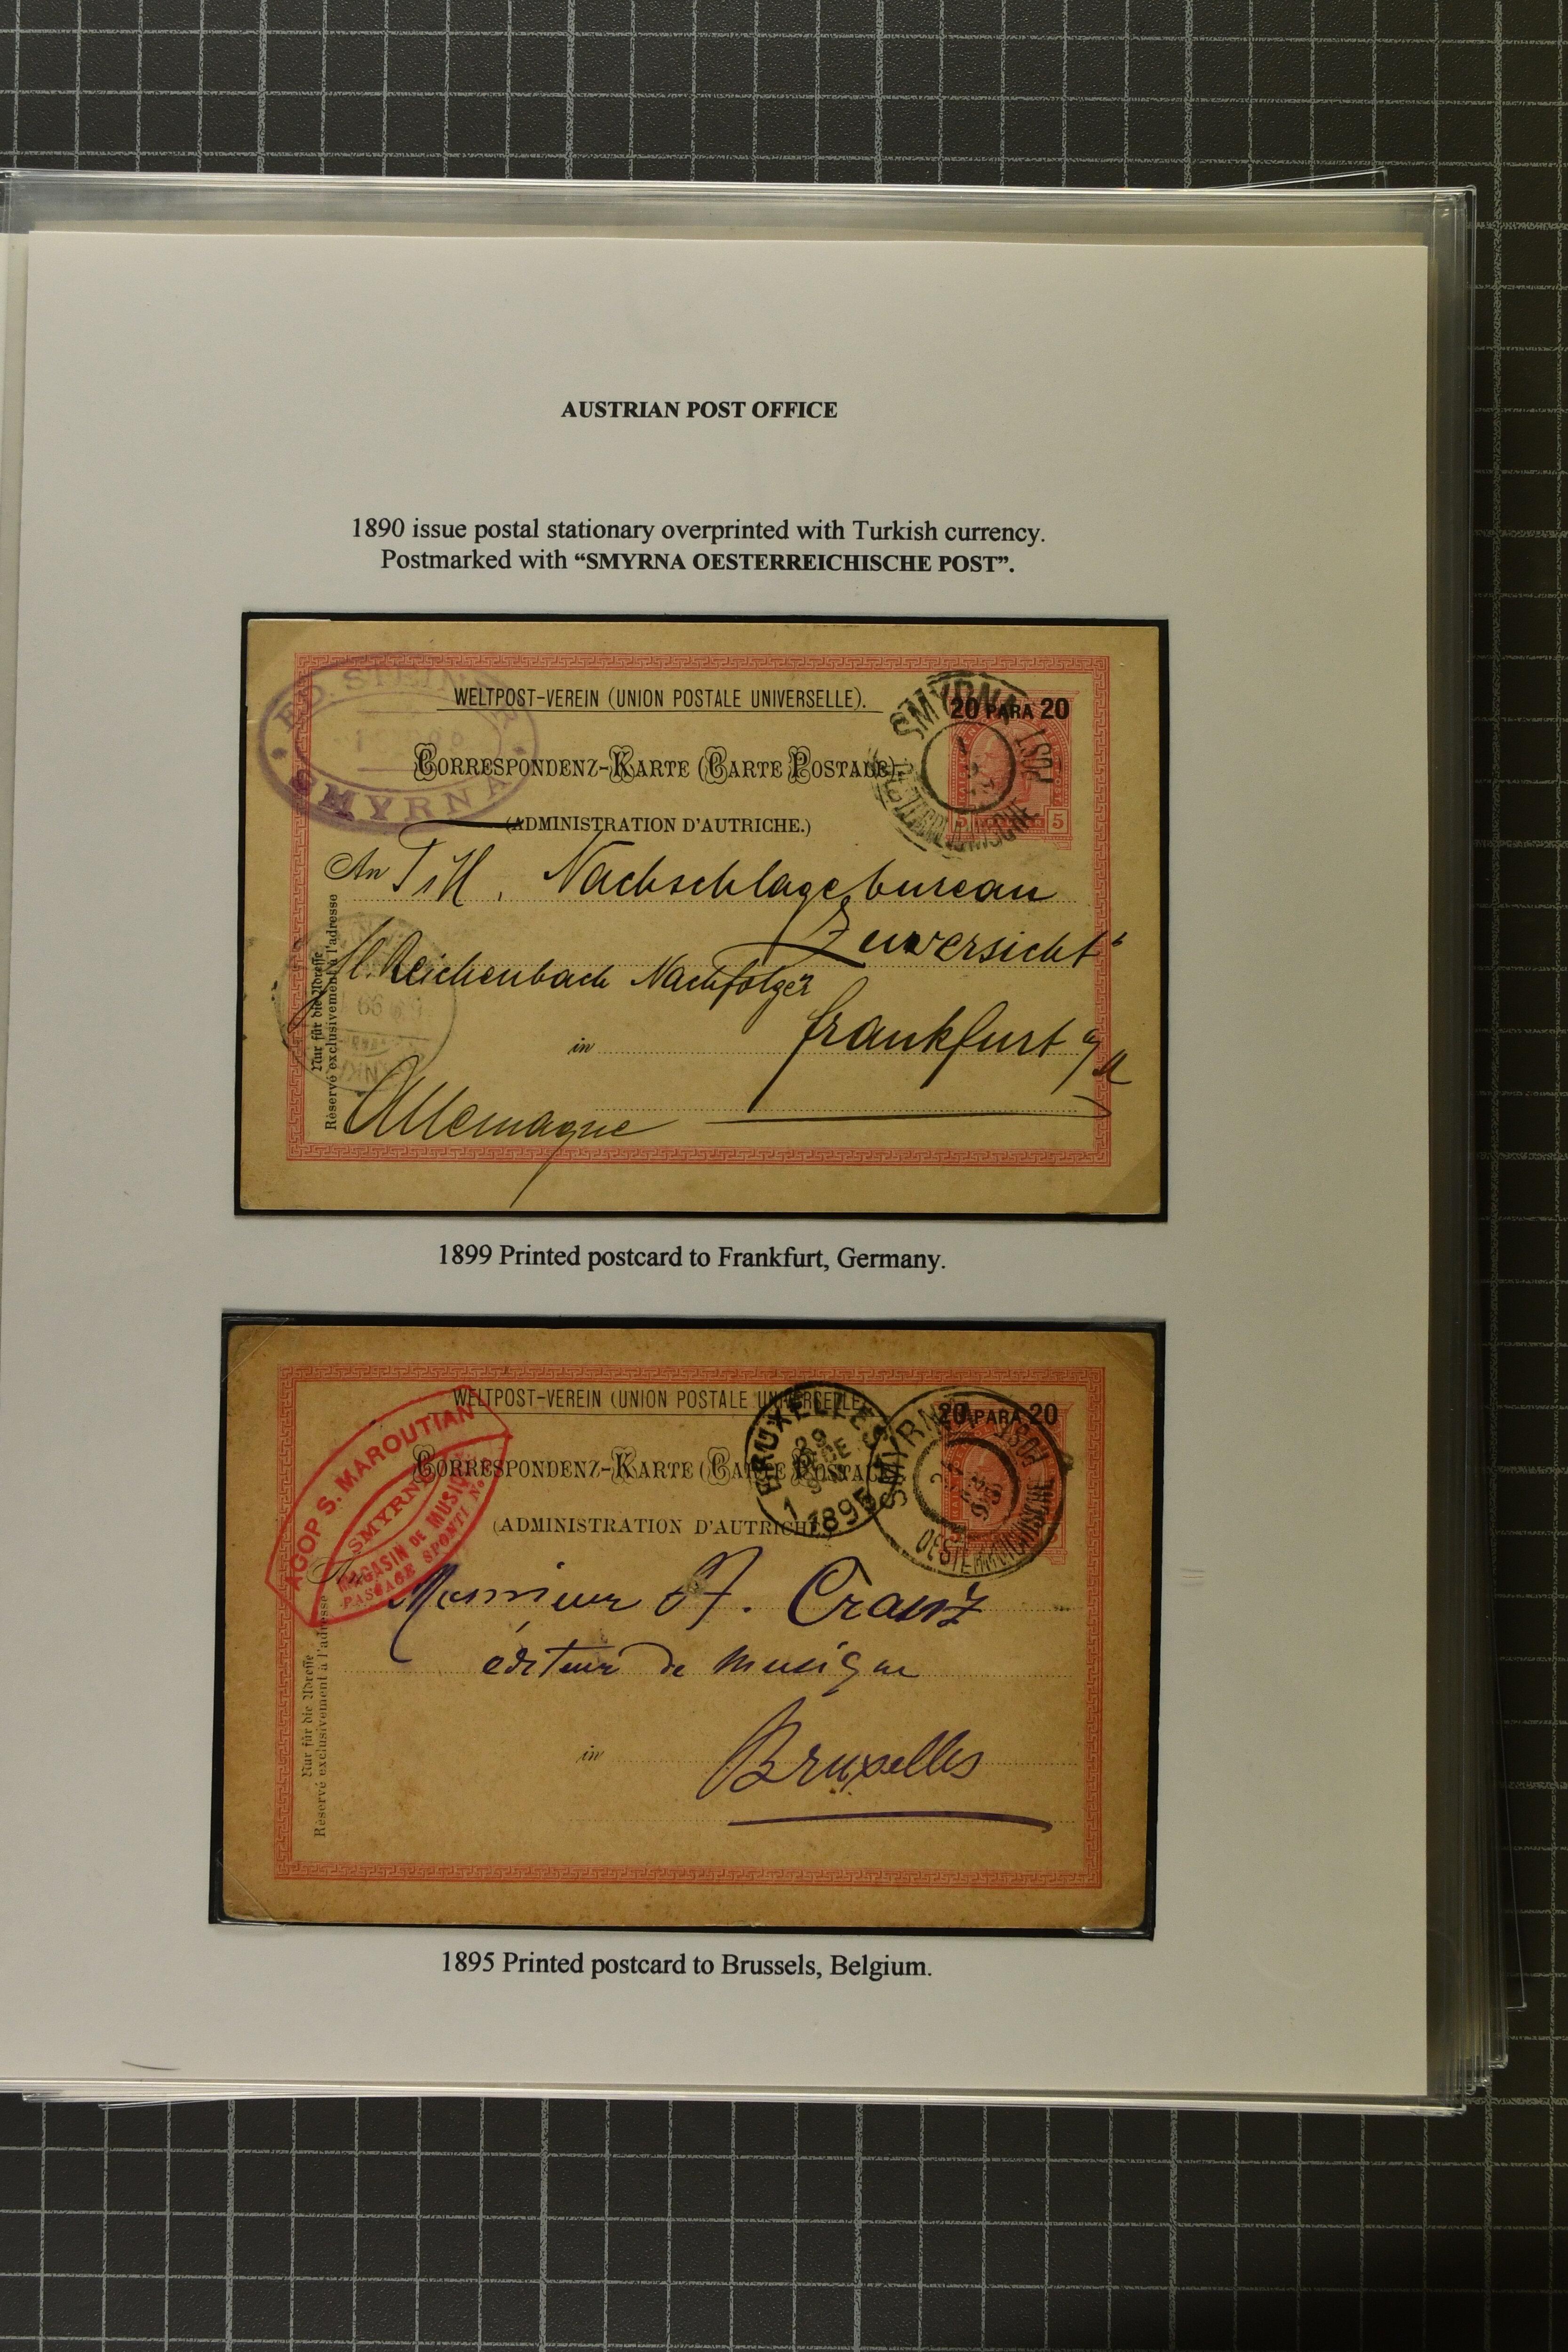 AUSTRIAN POST OFFICE
1890 issue postal stationary overprinted with Turkish currency.
Postmarked with “SMYRNA OESTERREICHISCHE POST”.
ED. STEINER
SMYRNA
WELTPOST-VEREIN (UNION POSTALE UNIVERSELLE).
20 PARA 20
CORRESPONDENZ-KARTE (CARTE POSTALE)
(ADMINISTRATION D'AUTRICHE.)
SMYRNA
OESTERREICHISCHE POST
5 5
An Nachschlagebureau
Zuversicht"
H. Reichenbach Nachfolger
in Frankfurt a/M
Allemagne
Nur für die Adresse
Réservé exclusivement à l'adresse
1899 Printed postcard to Frankfurt, Germany.
WELTPOST-VEREIN (UNION POSTALE UNIVERSELLE)
20 PARA 20
AGOP S. MAROUTIAN
SMYRNE
MAGASIN DE MUSIQUE
PASSAGE SPONTI No
CORRESPONDENZ-KARTE (CARTE POSTALE)
(ADMINISTRATION D'AUTRICHE.)
BRUXELLES
1 1895
SMYRNA
OESTERREICHISCHE POST
An Monsieur A. Cranz
éditeur de musique
in Bruxelles
Nur für die Adresse
Réservé exclusivement à l'adresse
1895 Printed postcard to Brussels, Belgium.